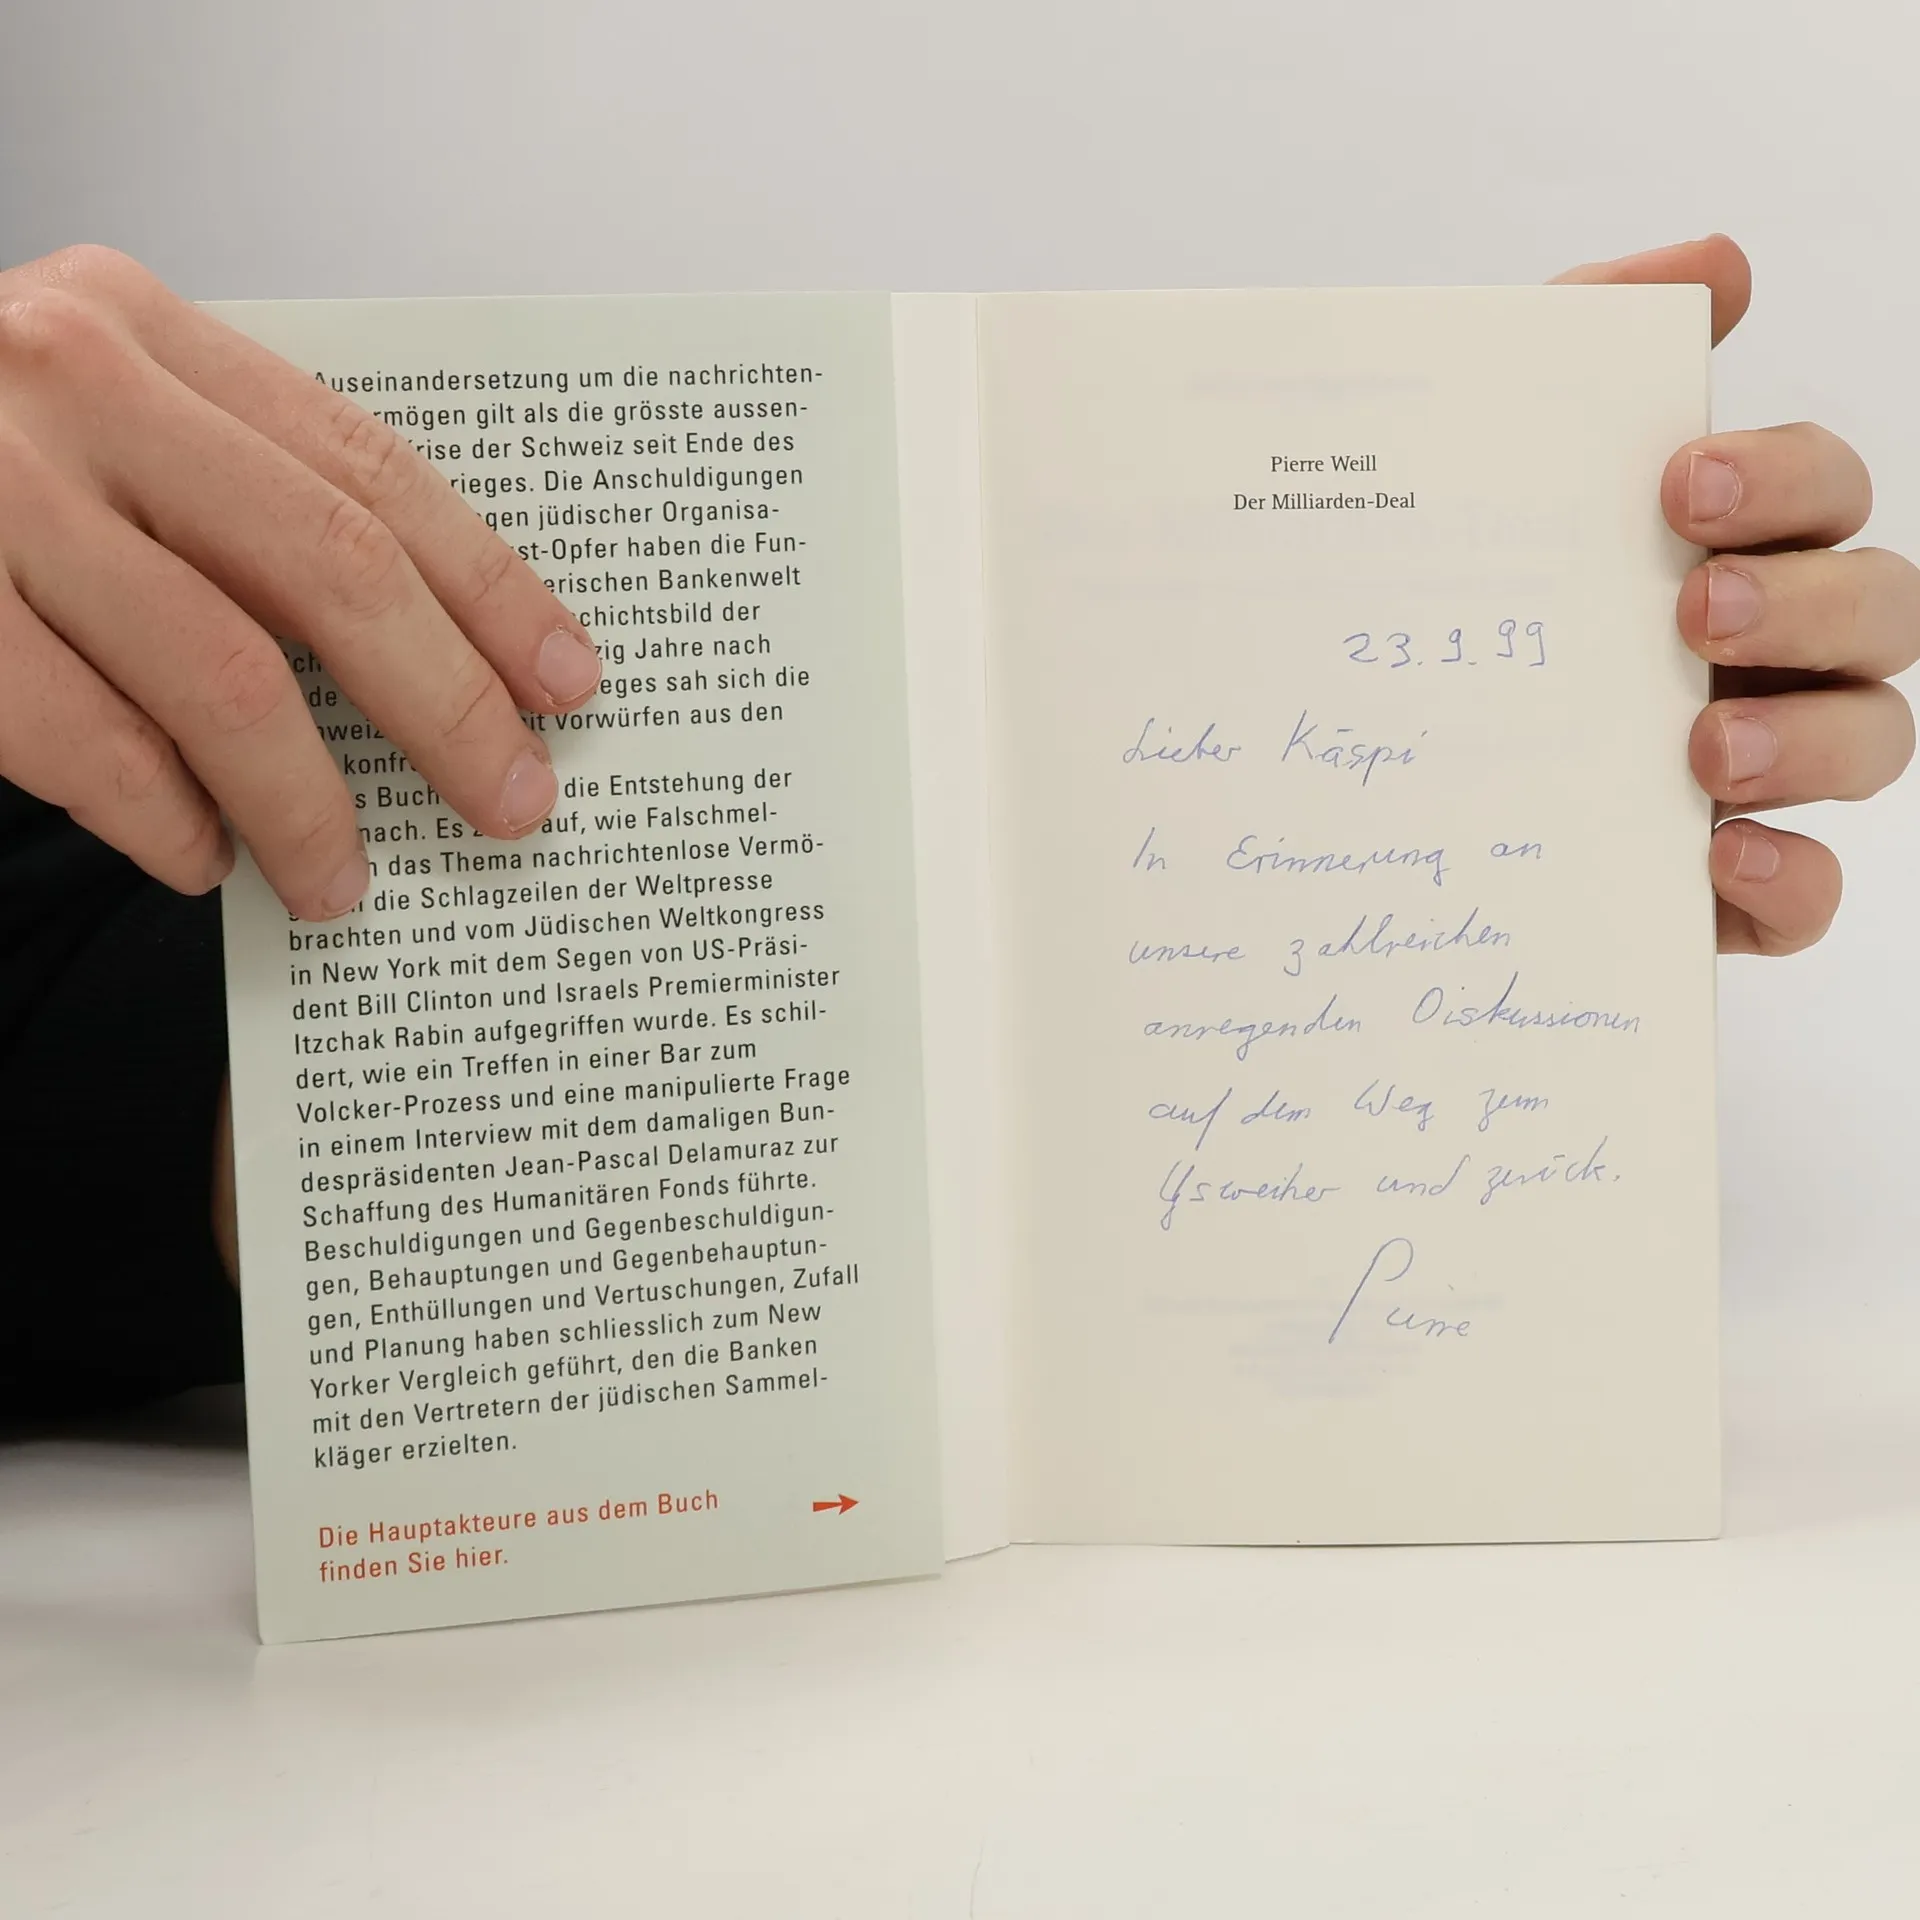 Auseinandersetzung um die nachrichten-
rmögen gilt als die grösste aussen-
rise der Schweiz seit Ende des
rieges. Die Anschuldigungen
gen jüdischer Organisa-
st-Opfer haben die Fun-
erischen Bankenwelt
chichtsbild der
zig Jahre nach
eges sah sich die
it Vorwürfen aus den
konfr
s Buch die Entstehung der
nach. Es auf, wie Falschmel-
n das Thema nachrichtenlose Vermö-
die Schlagzeilen der Weltpresse
brachten und vom Jüdischen Weltkongress
in New York mit dem Segen von US-Präsi-
dent Bill Clinton und Israels Premierminister
Itzchak Rabin aufgegriffen wurde. Es schil-
dert, wie ein Treffen in einer Bar zum
Volcker-Prozess und eine manipulierte Frage
in einem Interview mit dem damaligen Bun-
despräsidenten Jean-Pascal Delamuraz zur
Schaffung des Humanitären Fonds führte.
Beschuldigungen und Gegenbeschuldigun-
gen, Behauptungen und Gegenbehauptun-
gen, Enthüllungen und Vertuschungen, Zufall
und Planung haben schliesslich zum New
Yorker Vergleich geführt, den die Banken
mit den Vertretern der jüdischen Sammel-
kläger erzielten.
Die Hauptakteure aus dem Buch
finden Sie hier.
Pierre Weill
Der Milliarden-Deal
23.9.99
Lieber Käspi
In Erinnerung an
unsere zahlreichen
anregenden Diskussionen
auf dem Weg zum
und zurück.
Pierre